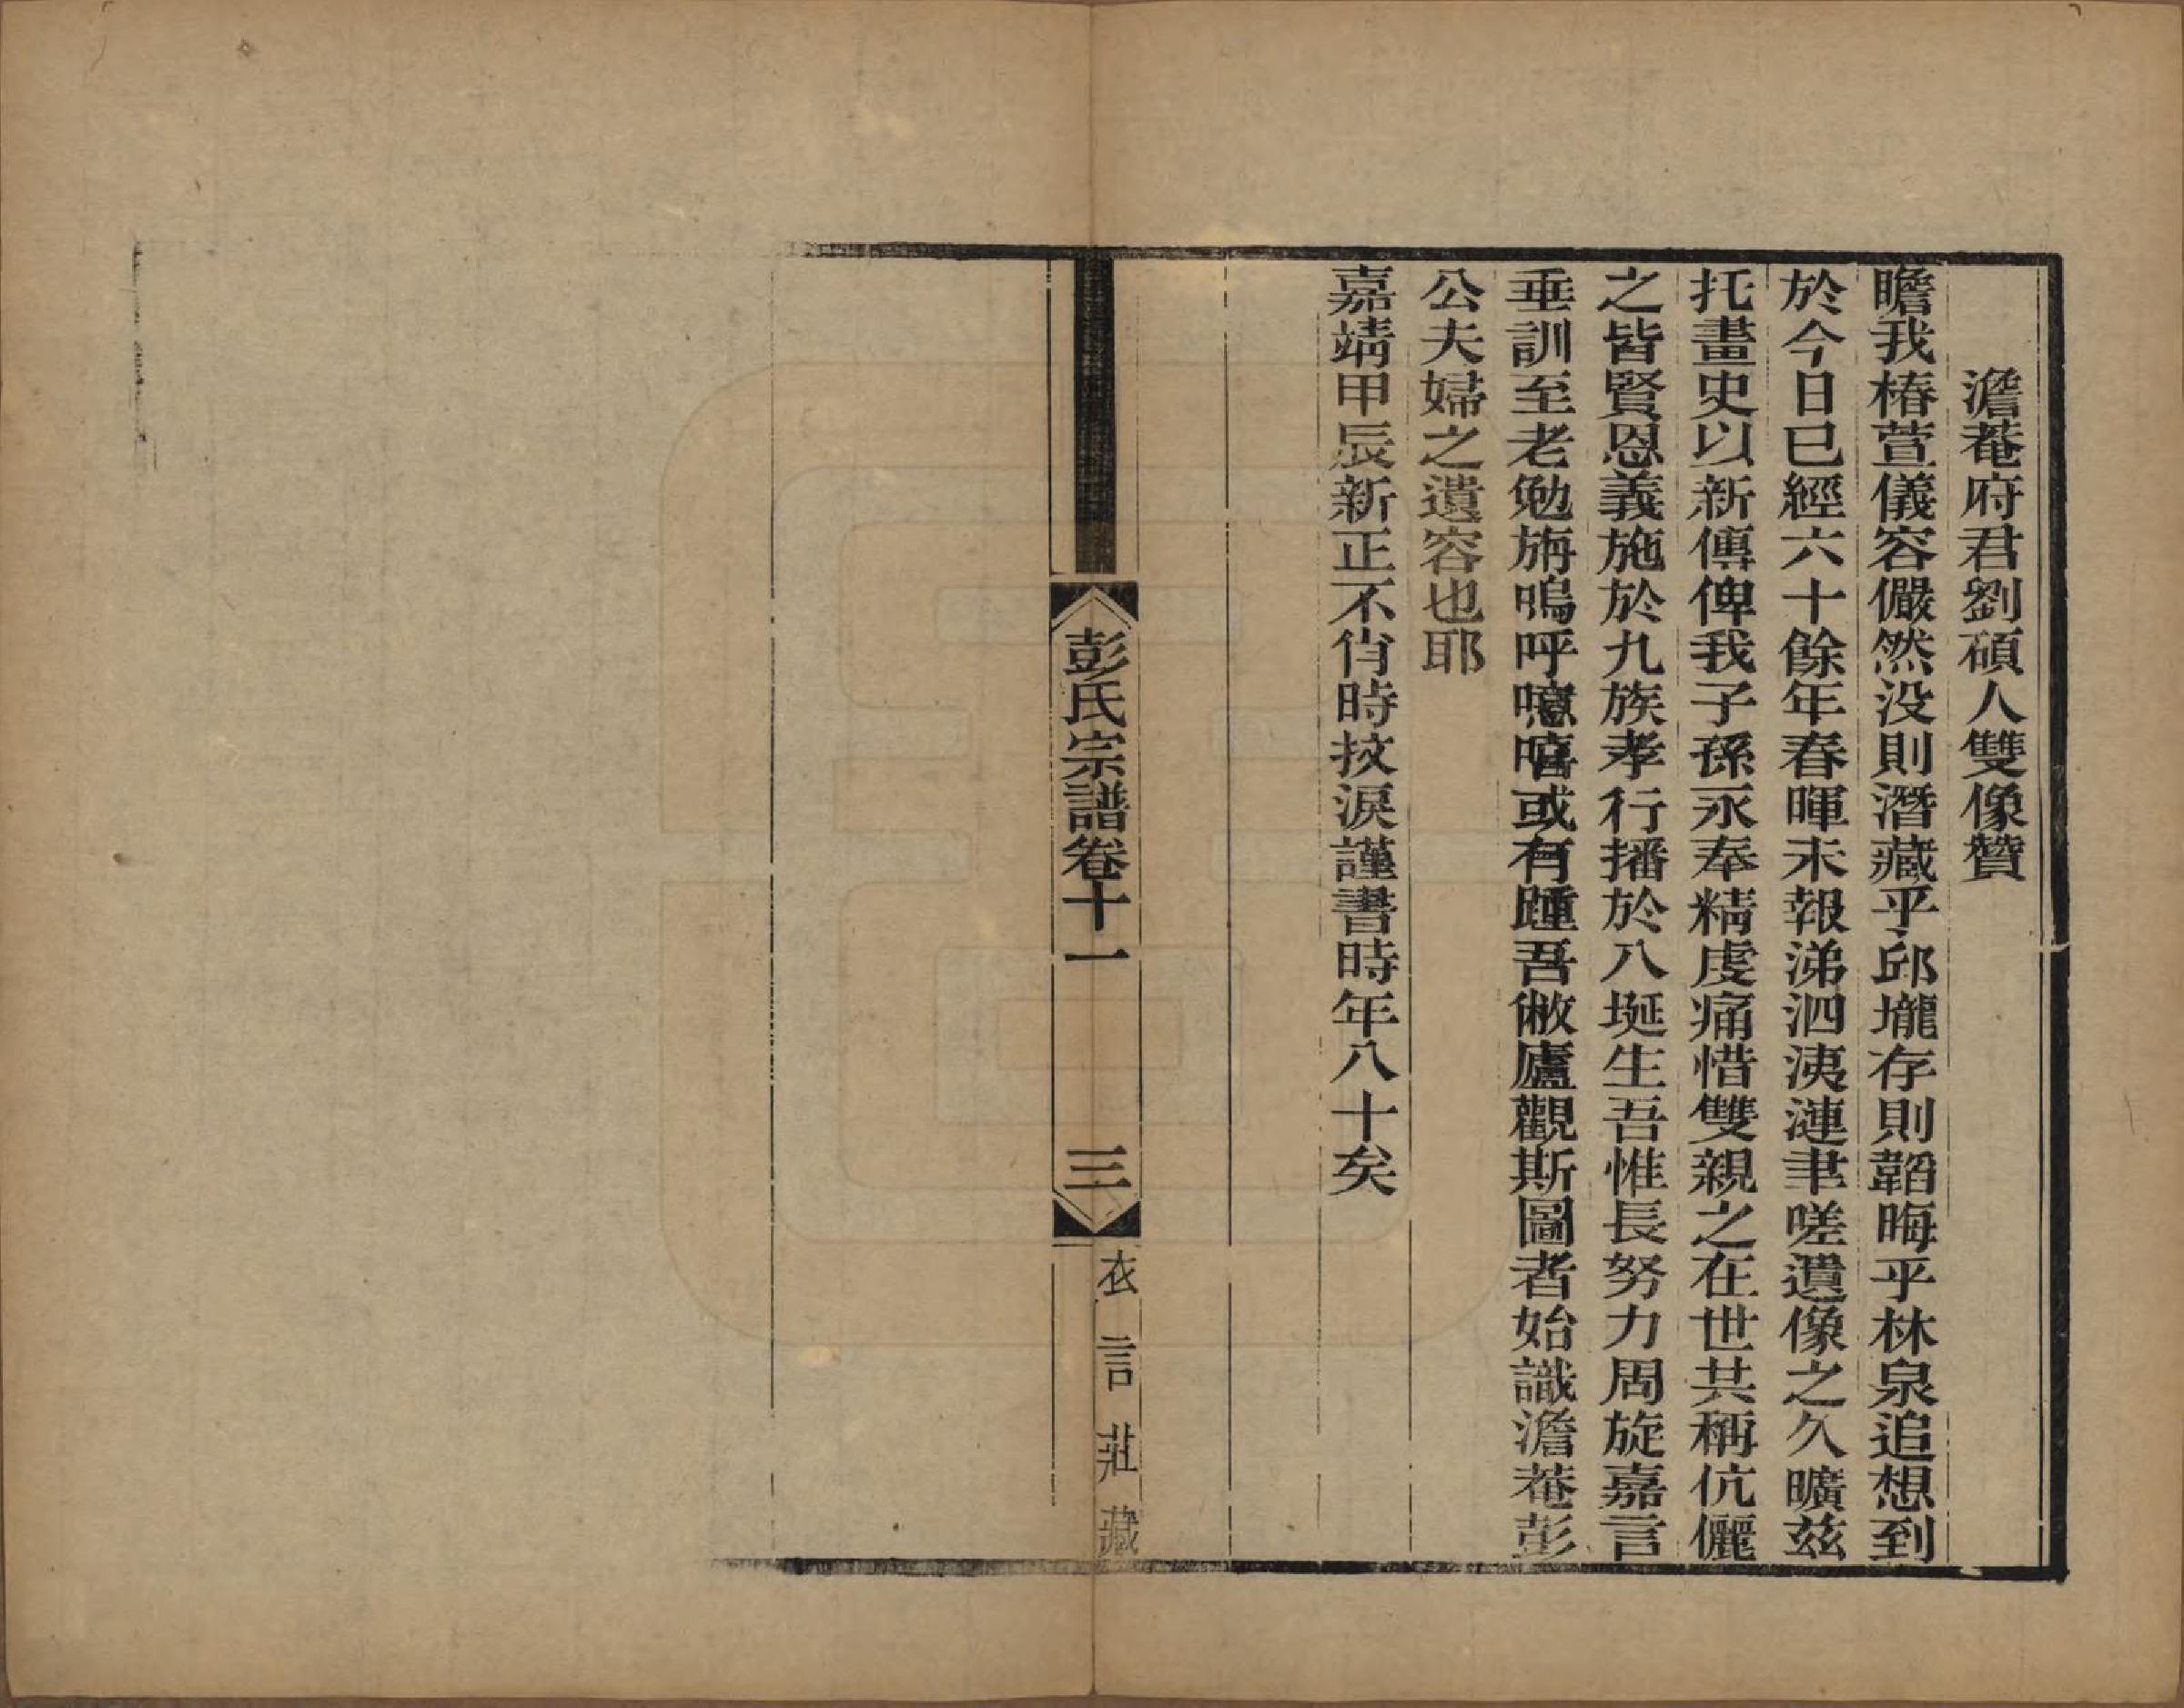 澹菴府君劉碩人雙像贊
瞻我椿萱儀容儼然没則潛藏乎邱壠存則韜晦乎林泉追想到
於今日已經六十餘年春暉未報涕泗洟漣聿嗟遺像之久曠茲
托畫史以新傳俾我子孫永奉精虔痛惜雙親之在世共稱伉儷
之皆賢恩義施於九族孝行播於八埏生吾惟長努力周旋嘉言
垂訓至老勉旃嗚呼噫嘻或有踵吾敝廬觀斯圖者始識澹菴彭
公夫婦之遺容也耶
嘉靖甲辰新正不肖時抆淚謹書時年八十矣
彭氏宗譜卷十一
三
衣言莊藏